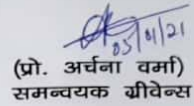 05/01/21
(प्रो. अर्चना वर्मा)
समन्वयक ग्रीवेन्स